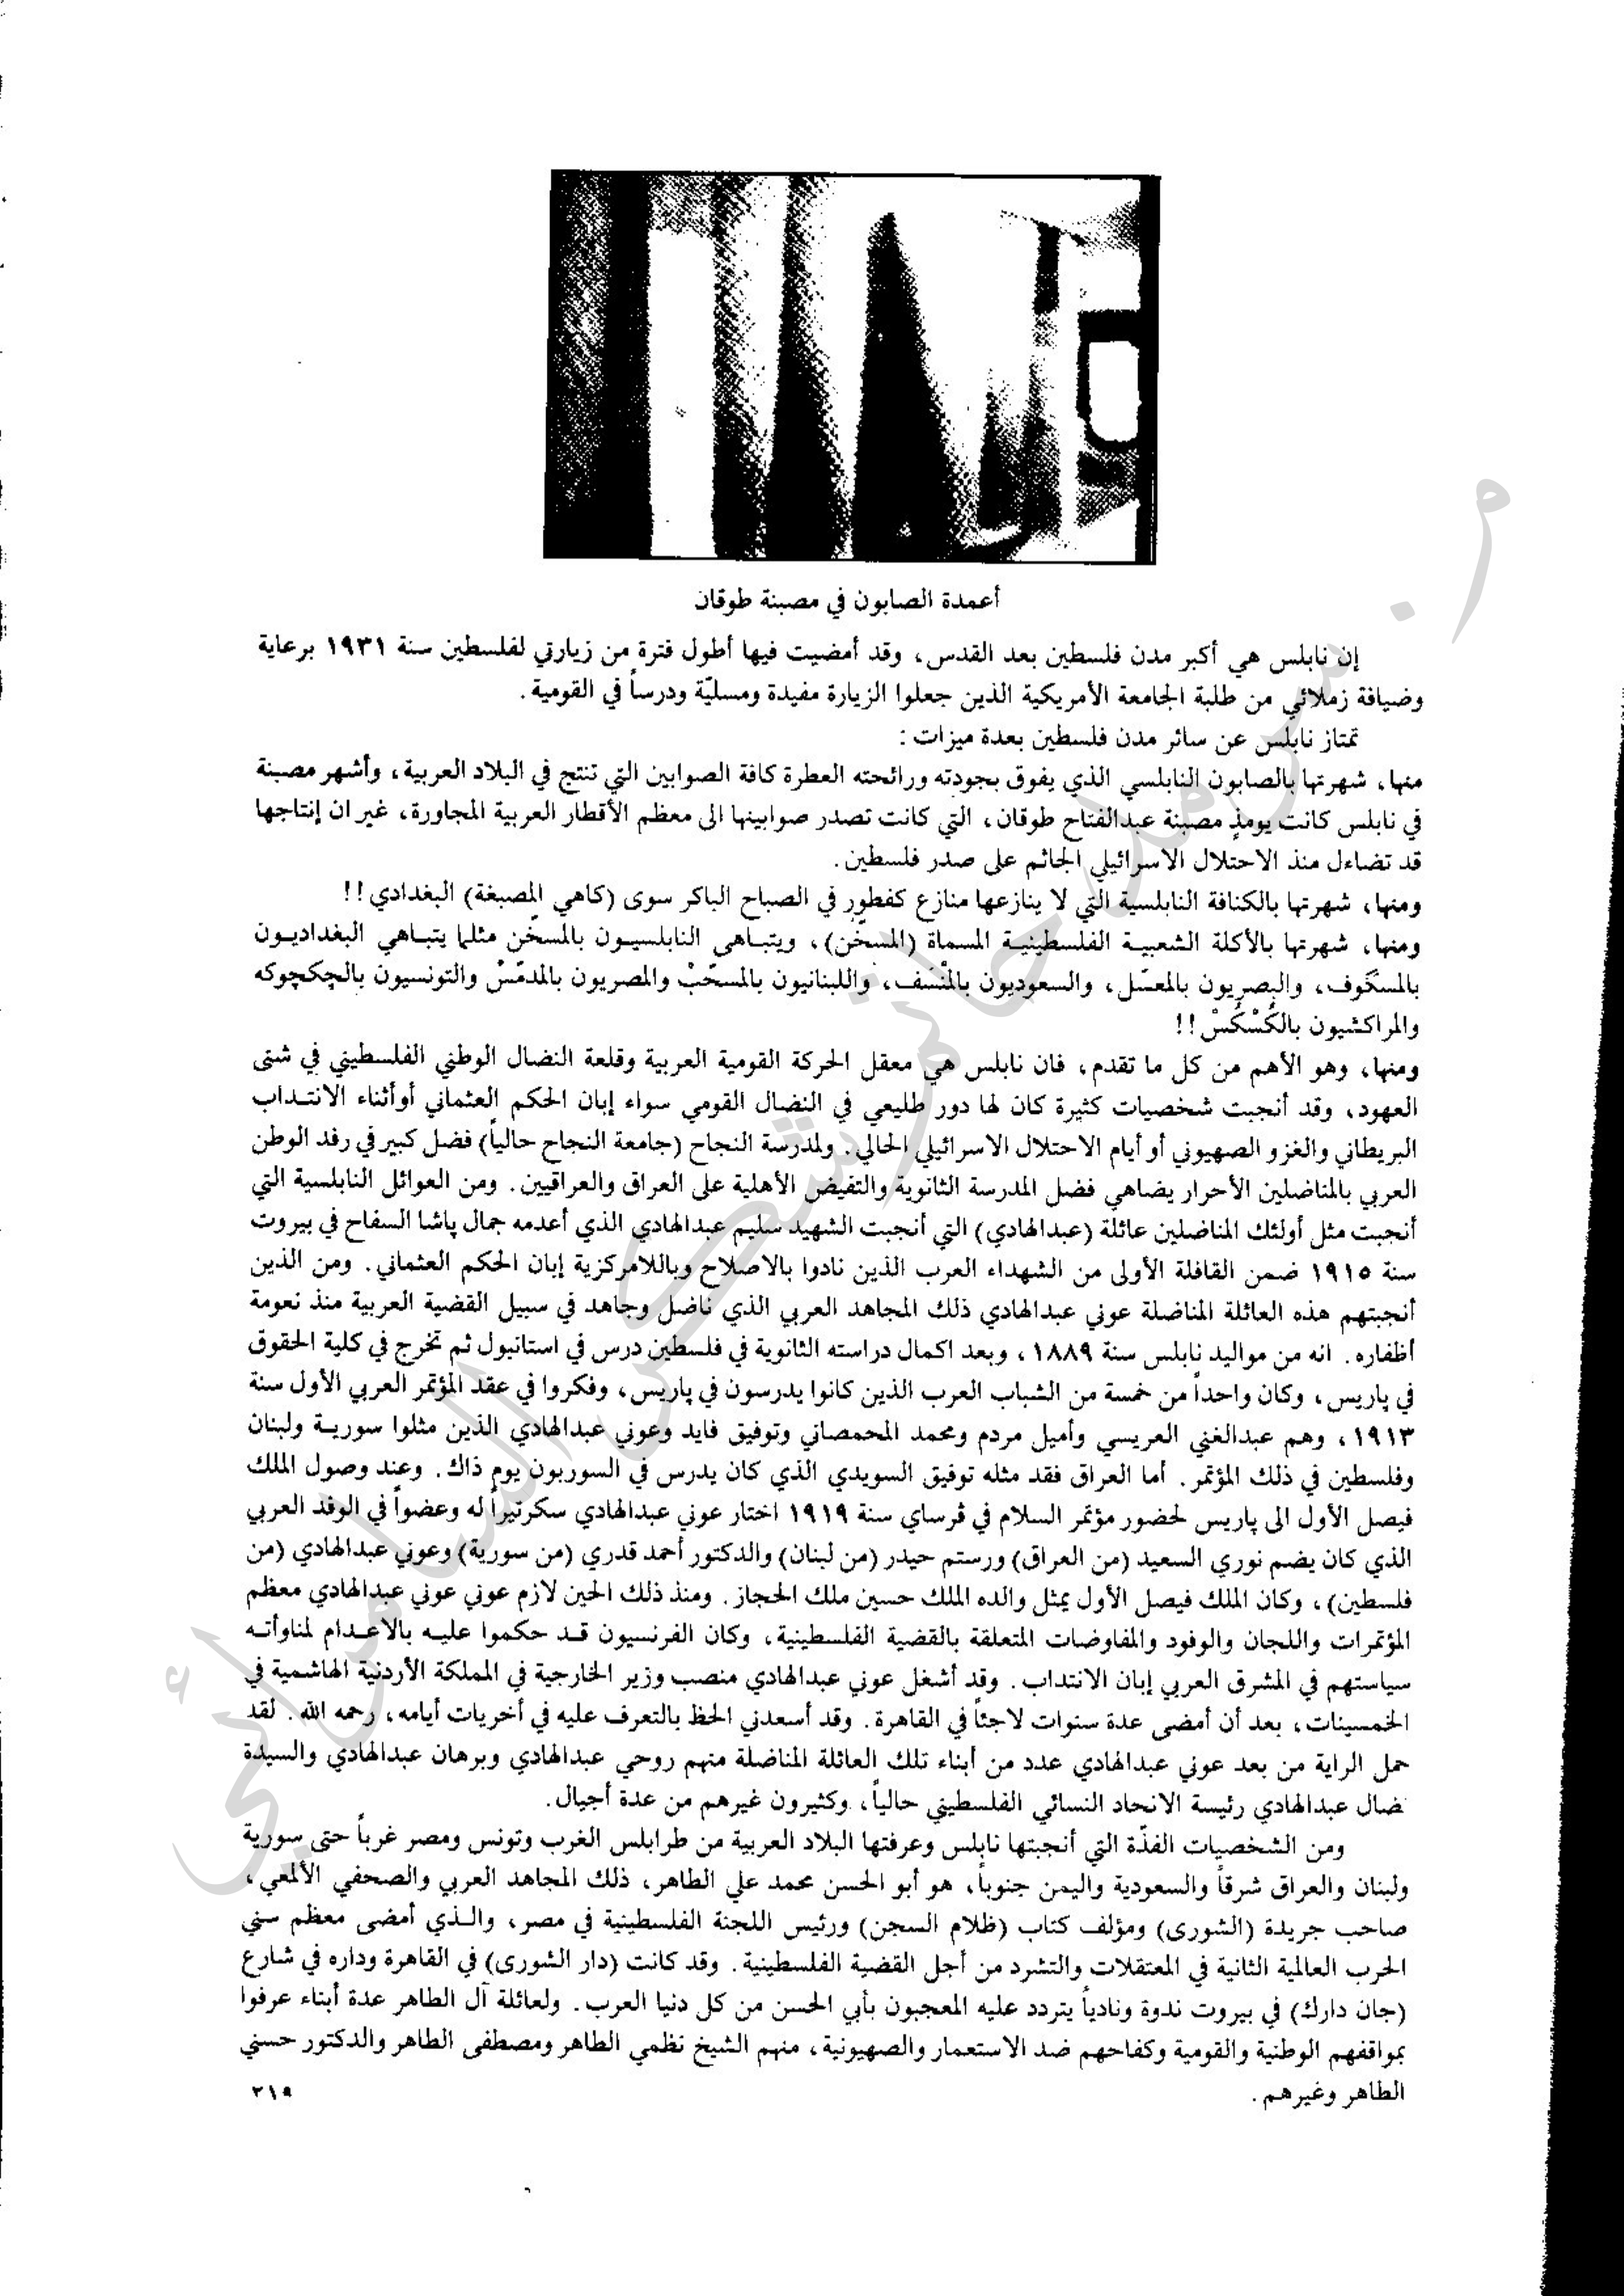 أعمدة الصابون في مصبنة طوقان
إن نابلس هي أكبر مدن فلسطين بعد القدس، وقد أمضيت فيها أطول فترة من زيارتي لفلسطين سنة ١٩٣١ برعاية
وضيافة زملائي من طلبة الجامعة الأمريكية الذين جعلوا الزيارة مفيدة ومسليّة ودرساً في القومية.
تمتاز نابلس عن سائر مدن فلسطين بعدة ميزات :
منها، شهرتها بالصابون النابلسي الذي يفوق بجودته ورائحته العطرة كافة الصوابين التي تنتج في البلاد العربية، وأشهر مصبنة
في نابلس كانت يومذٍ مصبنة عبدالفتاح طوقان، التي كانت تصدر صوابينها الى معظم الأقطار العربية المجاورة، غير ان إنتاجها
قد تضاءل منذ الاحتلال الاسرائيلي الجاثم على صدر فلسطين.
ومنها، شهرتها بالكنافة النابلسية التي لا ينازعها منازع كفطور في الصباح الباكر سوى (كاهي المصبغة) البغدادي !!
ومنها، شهرتها بالأكلة الشعبية الفلسطينية المسماة (المسخّن)، ويتباهى النابلسيون بالمسخّن مثلما يتباهي البغداديون
بالمسكَوف، والبصريون بالمعسّل، والسعوديون بالمنْسَف، واللبنانيون بالمسحّبْ والمصريون بالمدمّسْ والتونسيون بالچكچوكه
والمراكشيون بالكُسْكُسْ !!
ومنها، وهو الأهم من كل ما تقدم، فان نابلس هي معقل الحركة القومية العربية وقلعة النضال الوطني الفلسطيني في شتى
العهود، وقد أنجبت شخصيات كثيرة كان لها دور طليعي في النضال القومي سواء إبان الحكم العثماني أو أثناء الانتداب
البريطاني والغزو الصهيوني أو أيام الاحتلال الاسرائيلي الحالي. ولمدرسة النجاح (جامعة النجاح حالياً) فضل كبير في رفد الوطن
العربي بالمناضلين الأحرار يضاهي فضل المدرسة الثانوية والتفيض الأهلية على العراق والعراقيين. ومن العوائل النابلسية التي
أنجبت مثل أولئك المناضلين عائلة (عبدالهادي) التي أنجبت الشهيد سليم عبدالهادي الذي أعدمه جمال پاشا السفاح في بيروت
سنة ١٩١٥ ضمن القافلة الأولى من الشهداء العرب الذين نادوا بالاصلاح وباللامركزية إبان الحكم العثماني. ومن الذين
أنجبتهم هذه العائلة المناضلة عوني عبدالهادي ذلك المجاهد العربي الذي ناضل وجاهد في سبيل القضية العربية منذ نعومة
أظفاره. انه من مواليد نابلس سنة ١٨٨٩، وبعد اكمال دراسته الثانوية في فلسطين درس في استانبول ثم تخرج في كلية الحقوق
في پاريس، وكان واحداً من خمسة من الشباب العرب الذين كانوا يدرسون في پاريس، وفكروا في عقد المؤتمر العربي الأول سنة
١٩١٣، وهم عبدالغني العريسي وأميل مردم ومحمد المحمصاني وتوفيق فايد وعوني عبدالهادي الذين مثلوا سورية ولبنان
وفلسطين في ذلك المؤتمر. أما العراق فقد مثله توفيق السويدي الذي كان يدرس في السوربون يوم ذاك. وعند وصول الملك
فيصل الأول الى پاريس لحضور مؤتمر السلام في ڤرساي سنة ١٩١٩ اختار عوني عبدالهادي سكرتيراً له وعضواً في الوفد العربي
الذي كان يضم نوري السعيد (من العراق) ورستم حيدر (من لبنان) والدكتور أحمد قدري (من سورية) وعوني عبدالهادي (من
فلسطين)، وكان الملك فيصل الأول يمثل والده الملك حسين ملك الحجاز. ومنذ ذلك الحين لازم عوني عوني عبدالهادي معظم
المؤتمرات واللجان والوفود والمفاوضات المتعلقة بالقضية الفلسطينية، وكان الفرنسيون قد حكموا عليه بالاعدام لمناوأته
سياستهم في المشرق العربي إبان الانتداب. وقد أشغل عوني عبدالهادي منصب وزير الخارجية في المملكة الأردنية الهاشمية في
الخمسينات، بعد أن أمضى عدة سنوات لاجئاً في القاهرة. وقد أسعدني الحظ بالتعرف عليه في أخريات أيامه، رحمه الله. لقد
حمل الراية من بعد عوني عبدالهادي عدد من أبناء تلك العائلة المناضلة منهم روحي عبدالهادي وبرهان عبدالهادي والسيدة
نضال عبدالهادي رئيسة الاتحاد النسائي الفلسطيني حالياً، وكثيرون غيرهم من عدة أجيال.
ومن الشخصيات الفذّة التي أنجبتها نابلس وعرفتها البلاد العربية من طرابلس الغرب وتونس ومصر غرباً حتى سورية
ولبنان والعراق شرقاً والسعودية واليمن جنوباً، هو أبو الحسن محمد علي الطاهر، ذلك المجاهد العربي والصحفي الألمعي،
صاحب جريدة (الشورى) ومؤلف كتاب (ظلام السجن) ورئيس اللجنة الفلسطينية في مصر، والذي أمضى معظم سني
الحرب العالمية الثانية في المعتقلات والتشرد من أجل القضية الفلسطينية. وقد كانت (دار الشورى) في القاهرة وداره في شارع
(جان دارك) في بيروت ندوة ونادياً يتردد عليه المعجبون بأبي الحسن من كل دنيا العرب. ولعائلة آل الطاهر عدة أبناء عرفوا
بمواقفهم الوطنية والقومية وكفاحهم ضد الاستعمار والصهيونية، منهم الشيخ نظمي الطاهر ومصطفى الطاهر والدكتور حسني
الطاهر وغيرهم.
٢١٩